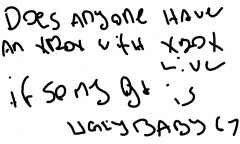 DOES ANYONE HAVE
AN XBOX WITH XBOX
LIVE
if so my gt is
UGLYBABY67